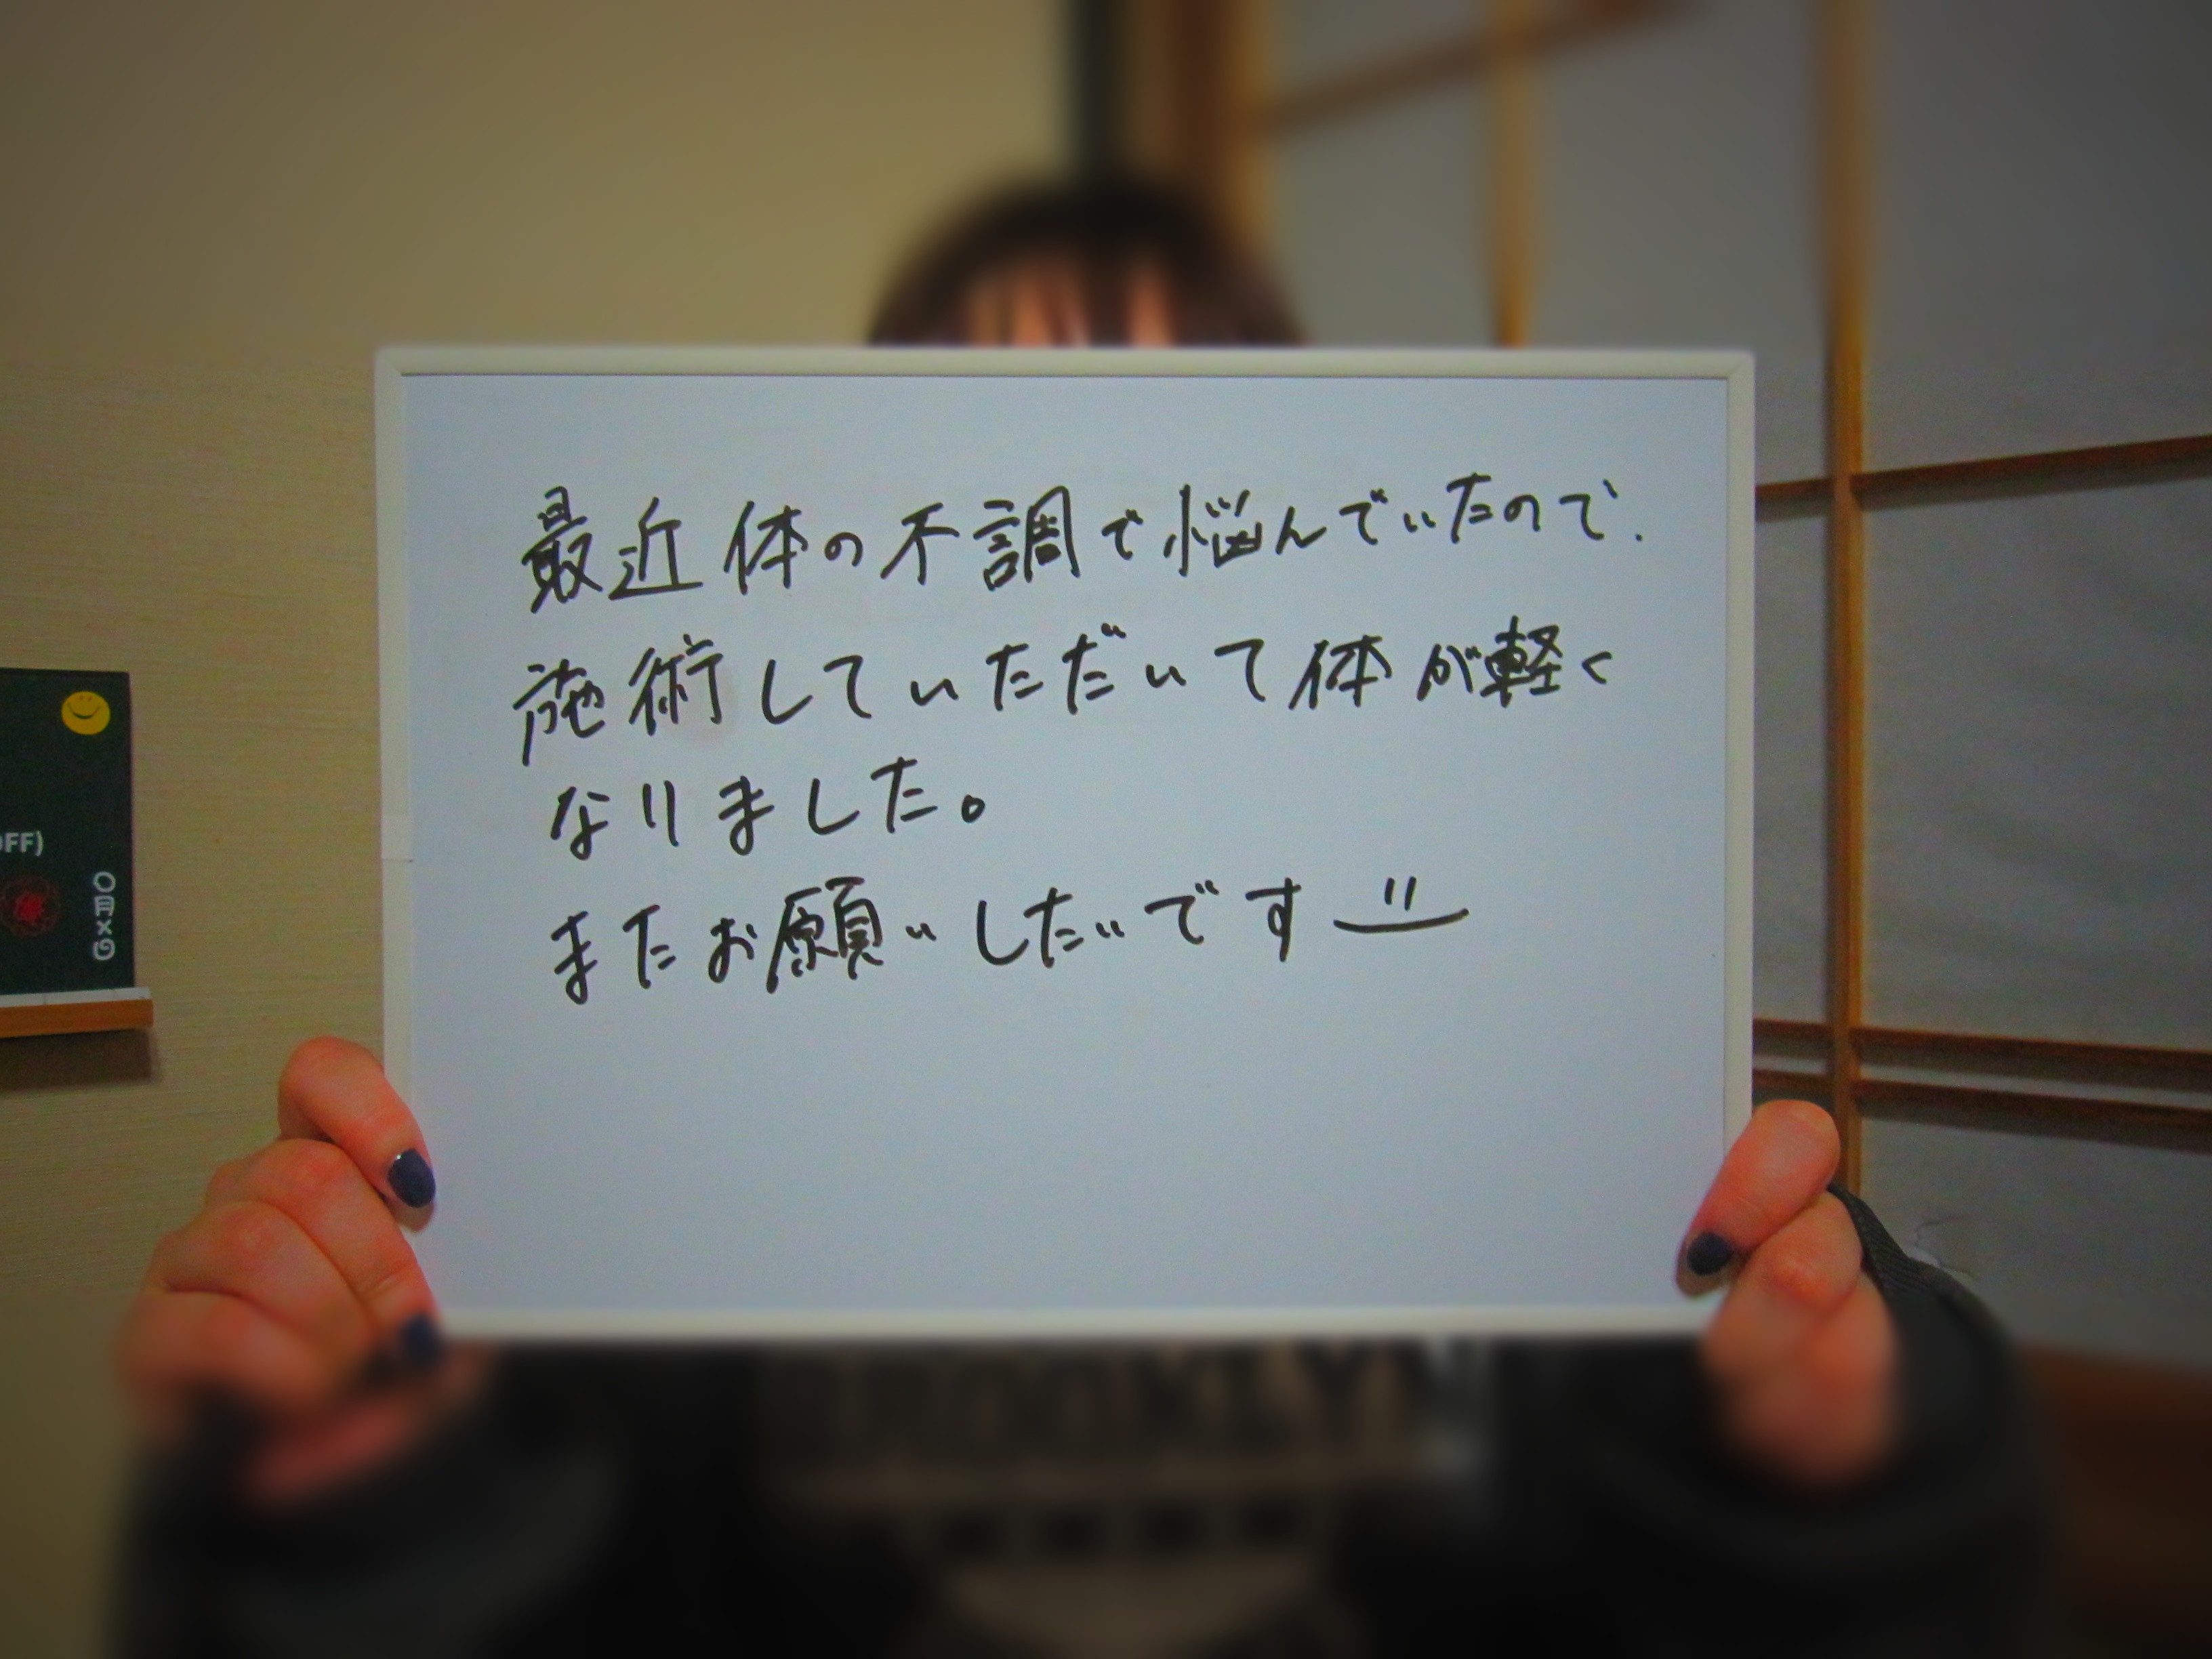 最近体の不調で悩んでいたので.
施術していただいて体が軽く
なりました。
またお願いしたいです
OFF)
○月×日
BROOKLYN